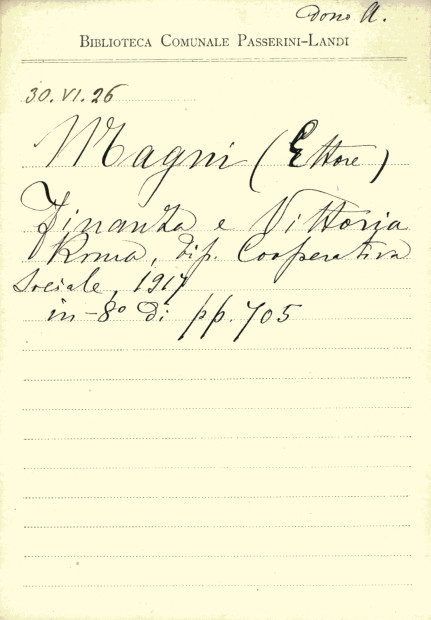 dono A.
BIBLIOTECA COMUNALE PASSERINI-LANDI
30.VI.26
Magni (Ettore)
Finanza e Vittoria
Roma, Tip. Cooperativa
Sociale, 1917
in-8° di pp. 705